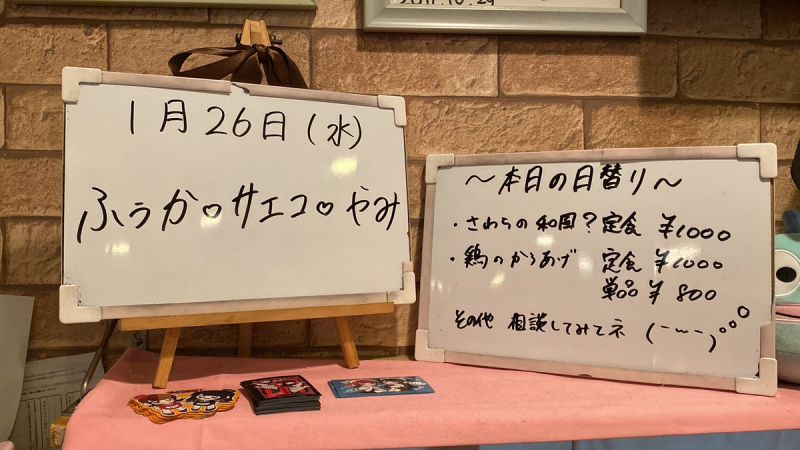 2011.10.29
1月26日(水)
ふうか♡サエコ♡やみ
～本日の日替り～
・さわらの和風?定食 ¥1000
・鶏のからあげ 定食 ¥1000
単品 ¥800
その他 相談してみてネ (ーwー)。oO